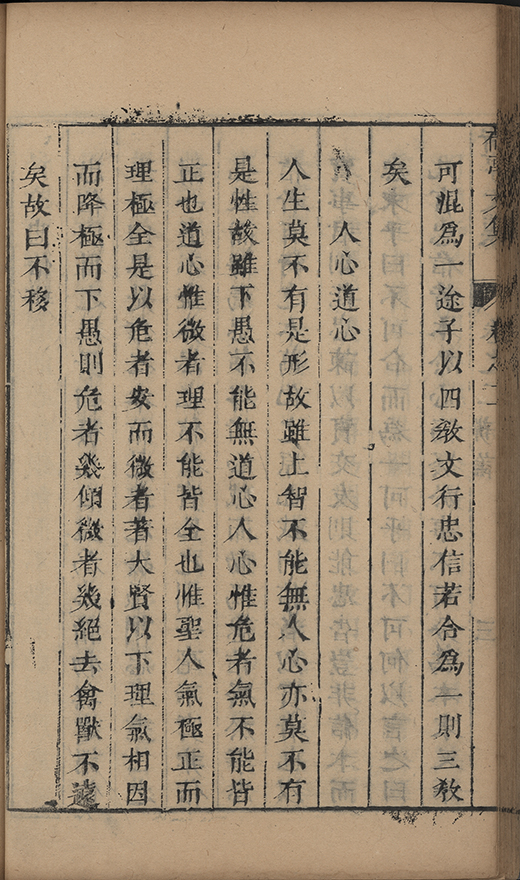 文集
卷之二
三
可混為一途子以四敎文行忠信若合為一則三敎
矣
人心道心
人生莫不有是形故雖上智不能無人心亦莫不有
是性故雖下愚不能無道心人心惟危者氣不能皆
正也道心惟微者理不能皆全也惟聖人氣極正而
理極全是以危者安而微者著大賢以下理氣相因
而降極而下愚則危者幾傾微者幾絕去禽獸不遠
矣故曰不移